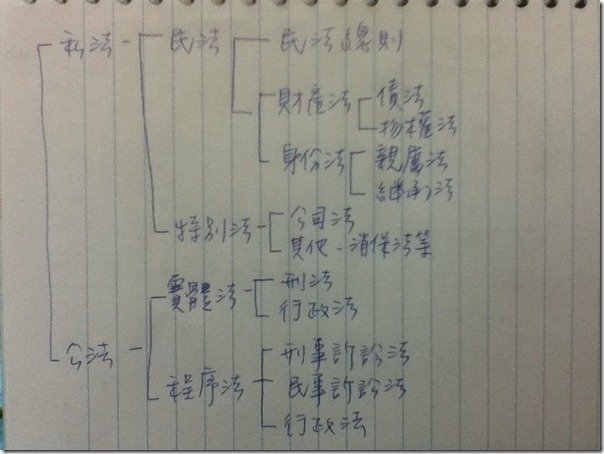 私法 - 民法 民法總則
財產法 債法
物權法
身份法 親屬法
繼承法
特別法 - 公司法
其他 - 消保法等
實體法 - 刑法
行政法
公法 -
程序法 - 刑事訴訟法
民事訴訟法
行政法